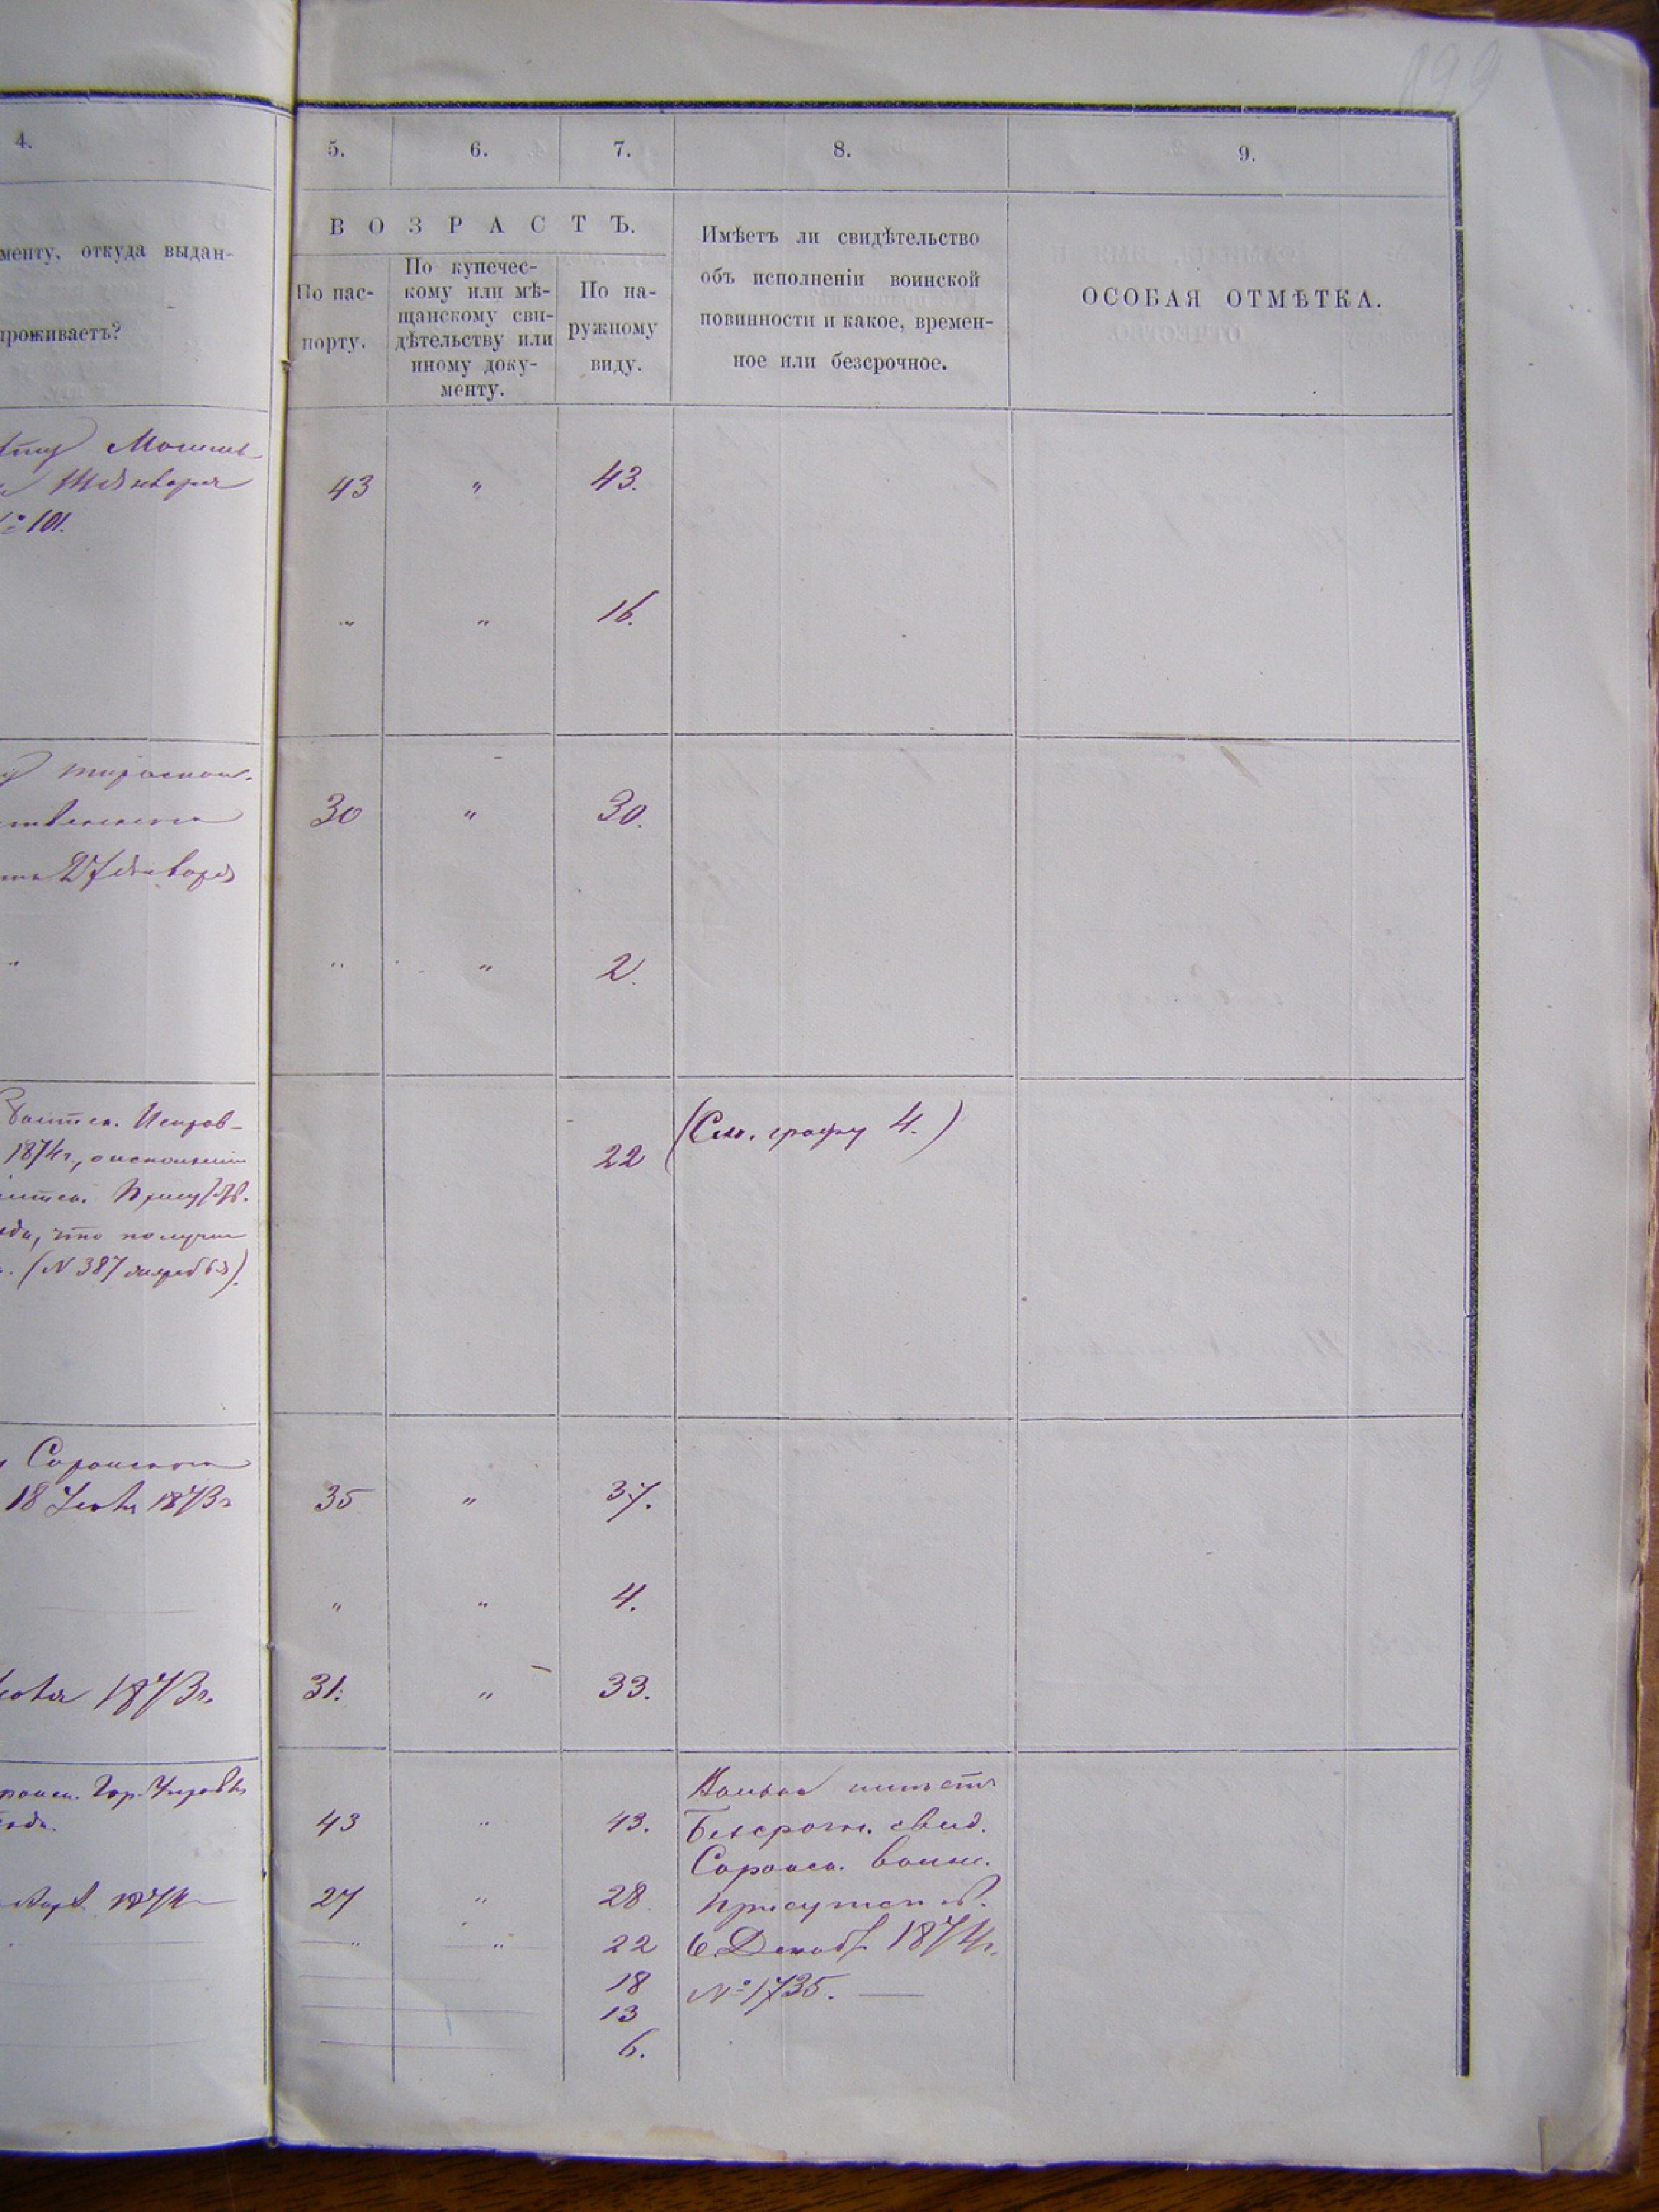 199
4.
5. 6. 7. 8. 9.
менту, откуда выдан-
проживаетъ?
ВОЗРАСТЪ.
По пас-
порту.
По купечес-
кому или мѣ-
щанскому сви-
дѣтельству или
иному доку-
менту.
По на-
ружному
виду.
Имѣетъ ли свидѣтельство
объ исполненіи воинской
повинности и какое, времен-
ное или безсрочное.
ОСОБАЯ ОТМѢТКА.
Января
№ 101.
43 " 43.
" " 16.
30 " 30.
27 Января
" " " 2.
Исправ-
1874г,
что получи
(N 387 жеребья).
22 (См. графу 4.)
Сорокскаго
18 1873г
35 " 37.
" " 4.
1873г.
31. " 33.
Гор. Управы
года.
1874
43 " 43.
27 " 28
" " 22
18
13
6.
Безсрочн. свид.
Сорокск. воинс.
присутств.
6 Декаб 1874г.
№ 1735. —